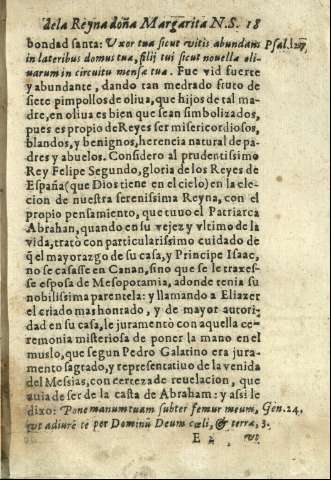 de la Reyna doña Margarita N.S. 18
bondad santa: Vxor tua sicut vitis abundans Psal. 127.
in lateribus domus tua, filij tui sicut nouella oli-
uarum in circuitu mensæ tuæ. Fue vid fuerte
y abundante, dando tan medrado fruto de
siete pimpollos de oliua, que hijos de tal ma-
dre, en oliua es bien que sean simbolizados,
pues es propio de Reyes ser misericordiosos,
blandos, y benignos, herencia natural de pa-
dres y abuelos. Considero al prudentissimo
Rey Felipe Segundo, gloria de los Reyes de
España (que Dios tiene en el cielo) en la elec-
cion de nuestra serenissima Reyna, con el
propio pensamiento, que tuuo el Patriarca
Abrahan, quando en su vejez y vltimo de la
vida, tratò con particularissimo cuidado de
q̃ el mayorazgo de su casa, y Principe Isaac,
no se casasse en Canan, sino que se le traxes-
se esposa de Mesopotamia, adonde tenia su
nobilissima parentela: y llamando a Eliazer
el criado mas honrado, y de mayor autori-
dad en su casa, le juramentò con aquella ce-
remonia misteriosa de poner la mano en el
muslo, que segun Pedro Galatino era jura-
mento sagrado, y representatiuo de la venida
del Messias, con certeza de reuelacion, que
auia de ser de la casta de Abraham: y assi le
dixo: Pone manum tuam subter femur meum, Gen. 24.
vt adiurē te per Dominū Deum cœli, & terra, 3.
E 2 vt